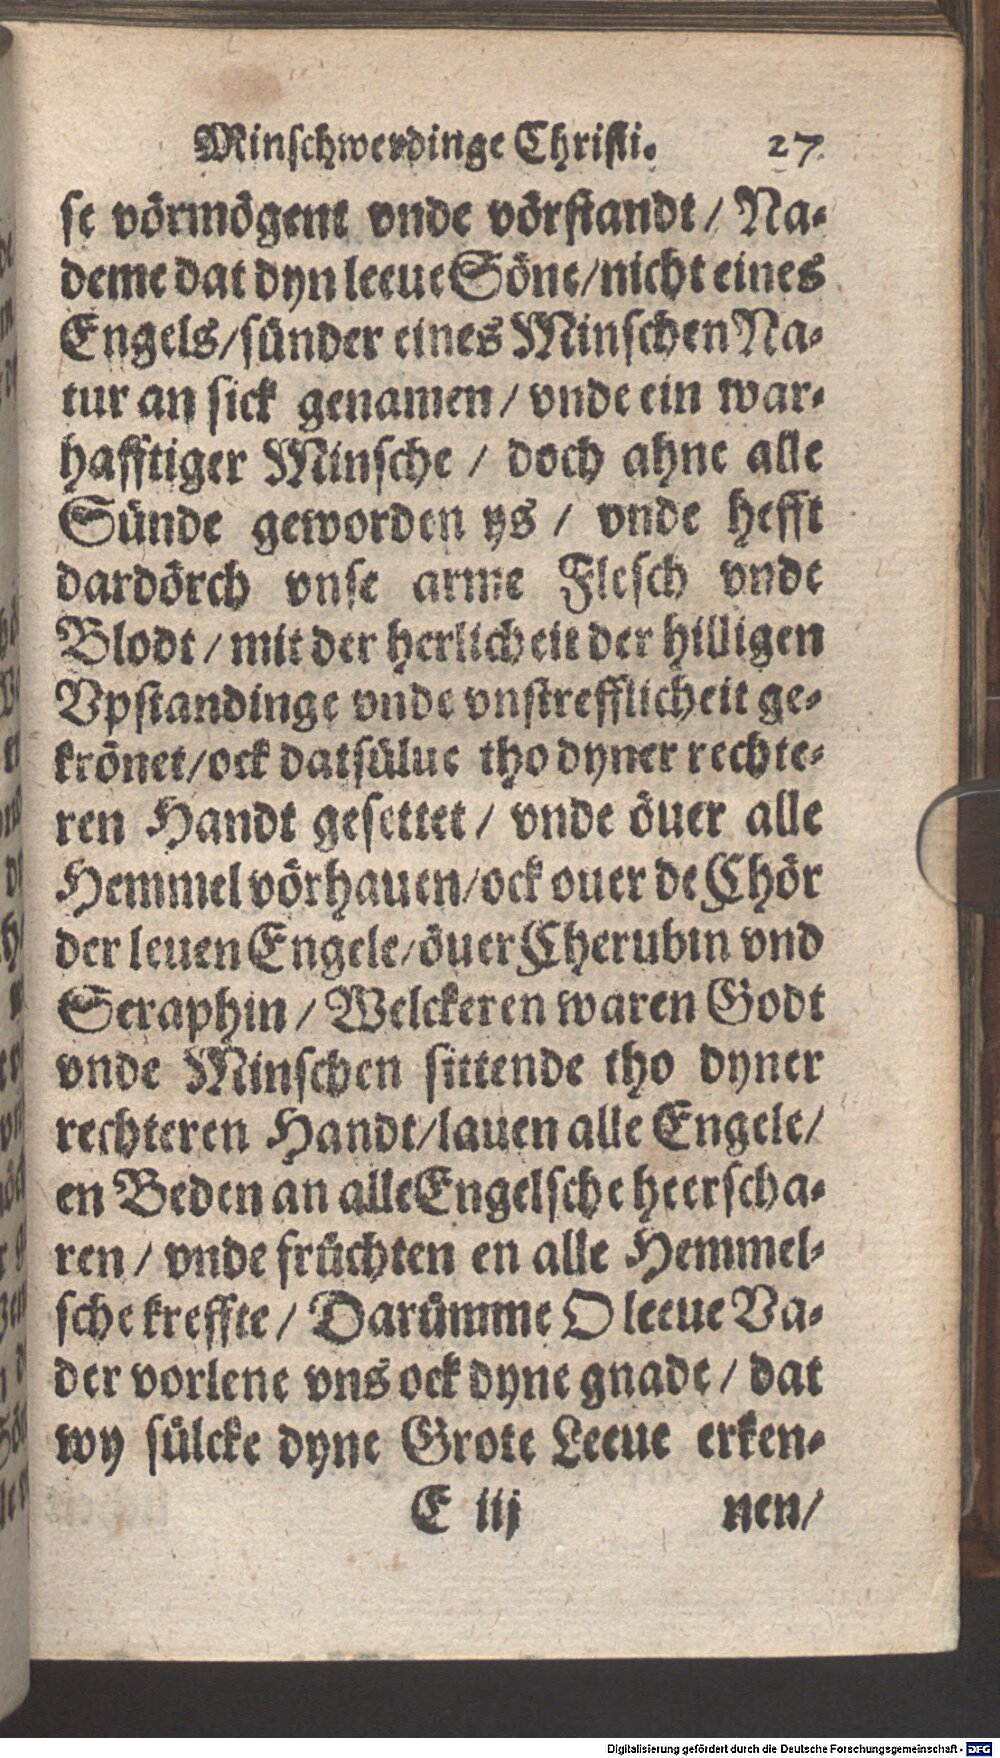 Minschwerdinge Christi. 27
se vörmögent vnde vörstandt / Na-
deme dat dyn leeue Söne/nicht eines
Engels/sünder eines Minschen Na-
tur an sick genamen / vnde ein war-
hafftiger Minsche / doch ahne alle
Sünde geworden ys / vnde hefft
dardörch vnse arme Flesch vnde
Blodt / mit der herlicheit der hilligen
Vpstandinge vnde vnstrefflicheit ge-
krönet/ock datsülue tho dyner rechte-
ren Handt gesettet / vnde öuer alle
Hemmel vörhauen/ock ouer de Chör
der leuen Engele/öuer Cherubin vnd
Seraphin / Welckeren waren Godt
vnde Minschen sittende tho dyner
rechteren Handt/lauen alle Engele/
en Beden an alle Engelsche heerscha-
ren / vnde früchten en alle Hemmel-
sche kreffte / Darümme O leeue Va-
der vorlene vns ock dyne gnade / dat
wy sülcke dyne Grote Leeue erken-
E iij nen/
Digitalisierung gefördert durch die Deutsche Forschungsgemeinschaft - DFG